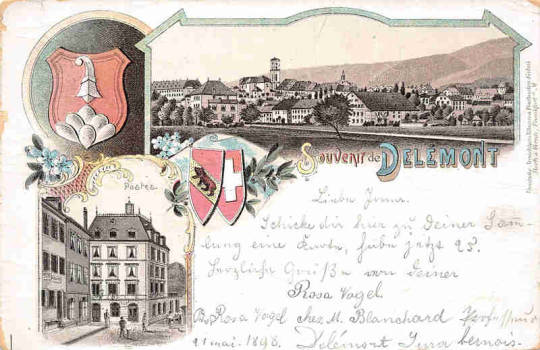 Souvenir de DELÉMONT
Postes
Liebe
Schicke dir hier zu Deiner Sam-
lung eine Karte, habe jetzt 25.
Herzliche Grüße von Deiner
Rosa Vogel
Rosa Vogel chez M. Blanchard Professeur
21 mai. 1898. Delémont Jura bernois.